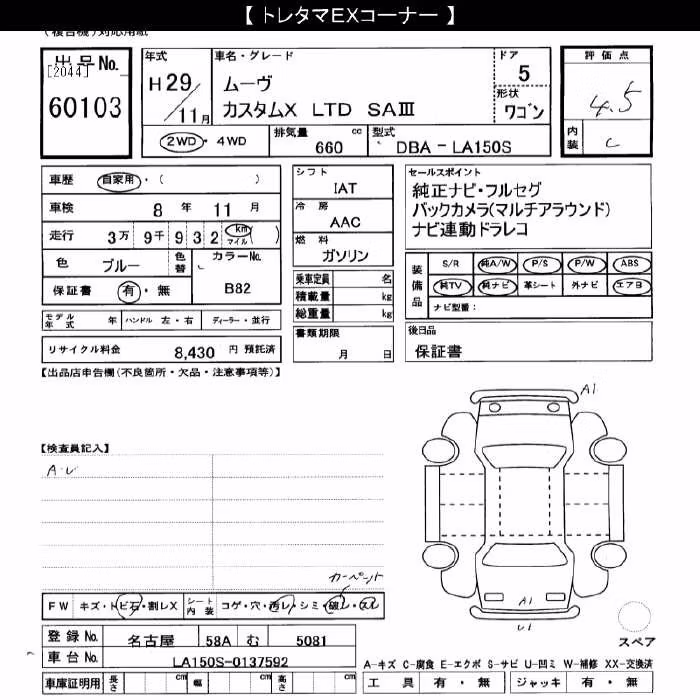 【 トレタマEXコーナー 】
(複合機)対応用紙
出品No.
[2044]
60103
年式
H29/11月
車名・グレード
ムーヴ
カスタムX LTD SAⅢ
ドア
5
形状
ワゴン
評価点
4.5
内装
C
2WD・4WD
排気量
660 cc
型式
DBA - LA150S
車歴 自家用・( )
車検 8年 11月
走行 3万 9千 9 3 2 km マイル ( )
色 ブルー
色替
カラーNo.
B82
保証書 有・無
モデル年式 年 ハンドル 左・右 ディーラー・並行
リサイクル料金 8,430 円 預託済
シフト
IAT
冷房
AAC
燃料
ガソリン
乗車定員 名
積載量 kg
総重量 kg
書類期限
月 日
セールスポイント
純正ナビ・フルセグ
バックカメラ(マルチアラウンド)
ナビ連動ドラレコ
装備品
S/R 純A/W P/S P/W ABS
純TV 純ナビ 革シート 外ナビ エアB
ナビ型番:
後日品
保証書
【出品店申告欄(不良箇所・欠品・注意事項等)】
【検査員記入】
A・U
A1
A1
U1
カーペット
FW キズ・トビ石・割レX
シート内装 コゲ・穴・汚レ・シミ・破レ・スレ
登録No. 名古屋 58A む 5081
車台No. LA150S-0137592
車庫証明用 長さ cm 幅 cm 高さ cm
スペア
A-キズ C-腐食 E-エクボ S-サビ U-凹ミ W-補修 XX-交換済
工具 有・無 ジャッキ 有・無